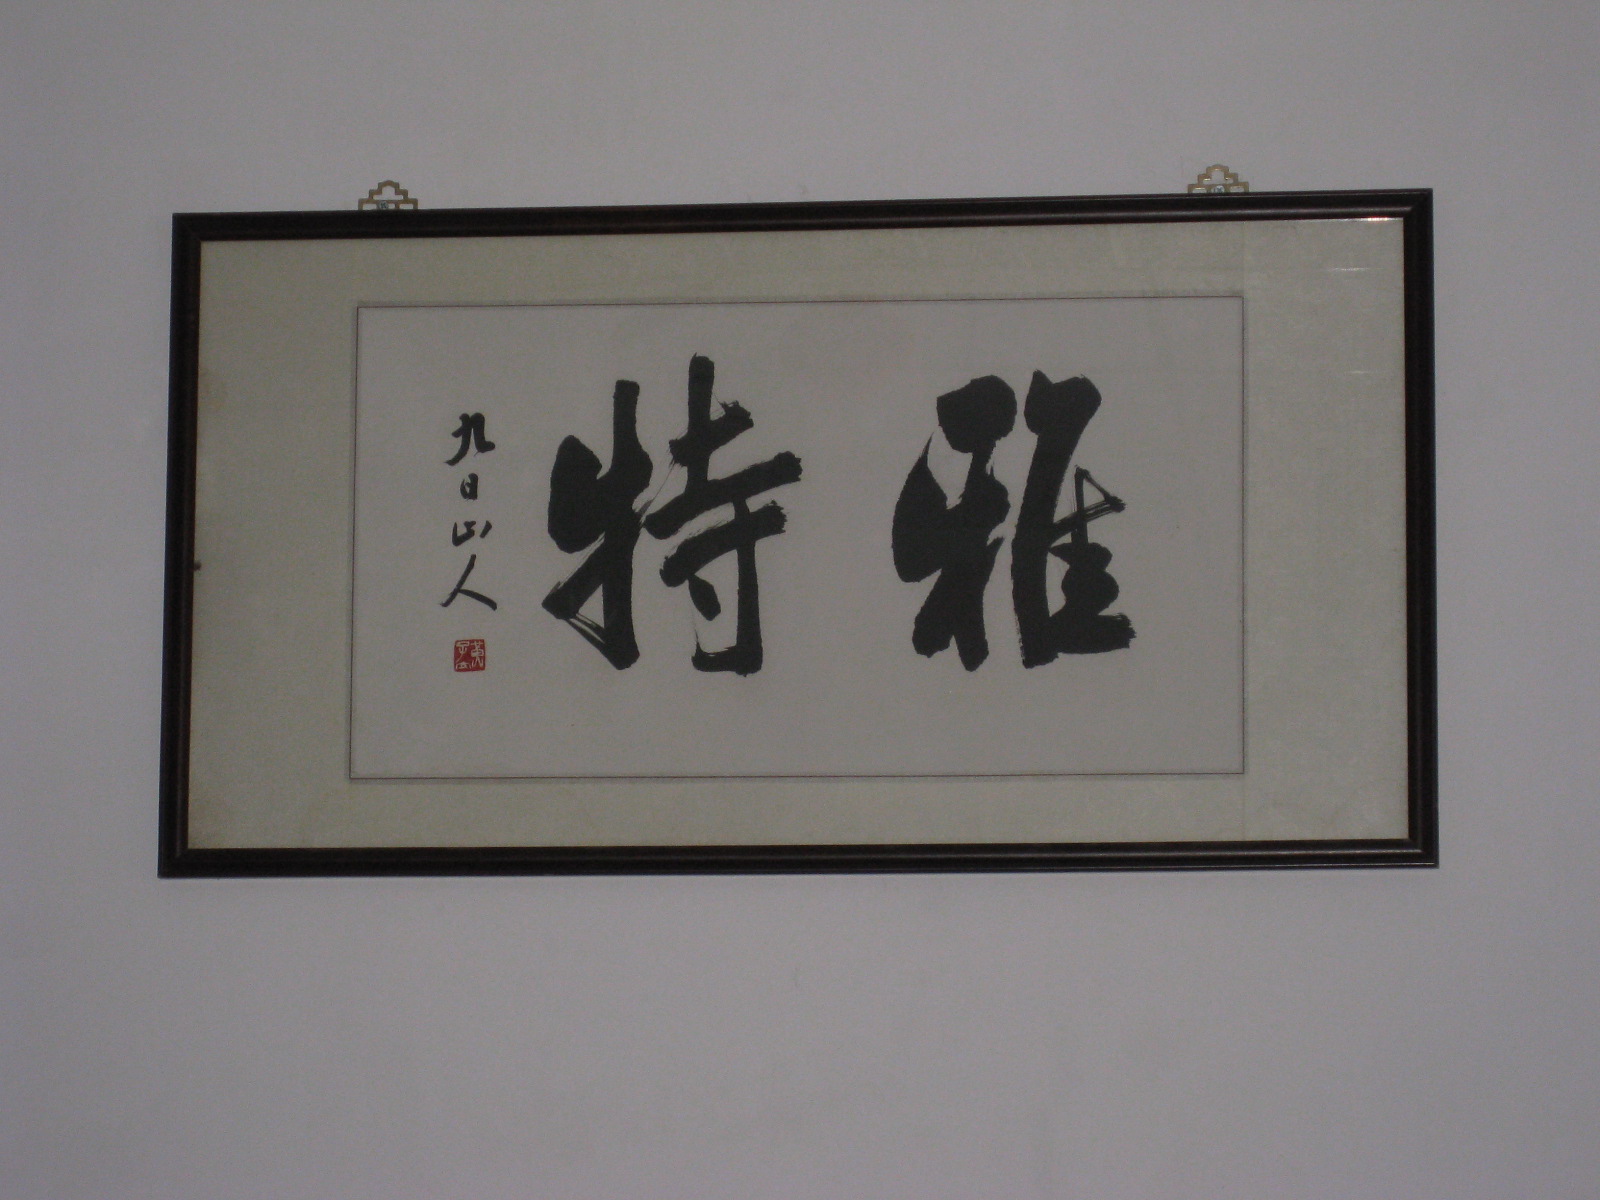 雅特
九日山人